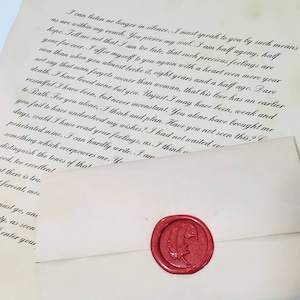 I can listen no longer in silence. I must speak to you by such means
as are within my reach. You pierce my soul. I am half agony, half
hope. Tell me not that I am too late, that such precious feelings are
gone for ever. I offer myself to you again with a heart even more your
own than when you almost broke it, eight years and a half ago. Dare
not say that man forgets sooner than woman, that his love has an earlier
death. I have loved none but you. Unjust I may have been, weak and
resentful I have been, but never inconstant. You alone have brought me
to Bath. For you alone, I think and plan. Have you not seen this? Can
you fail to have understood my wishes? I had not waited even
days, could I have read your feelings, as I think
penetrated mine. I can hardly write. I am
something which overpowers me. You
distinguish the tones of that
good, too excellent
that there is
fervent, most
must go,
as soon
enter your